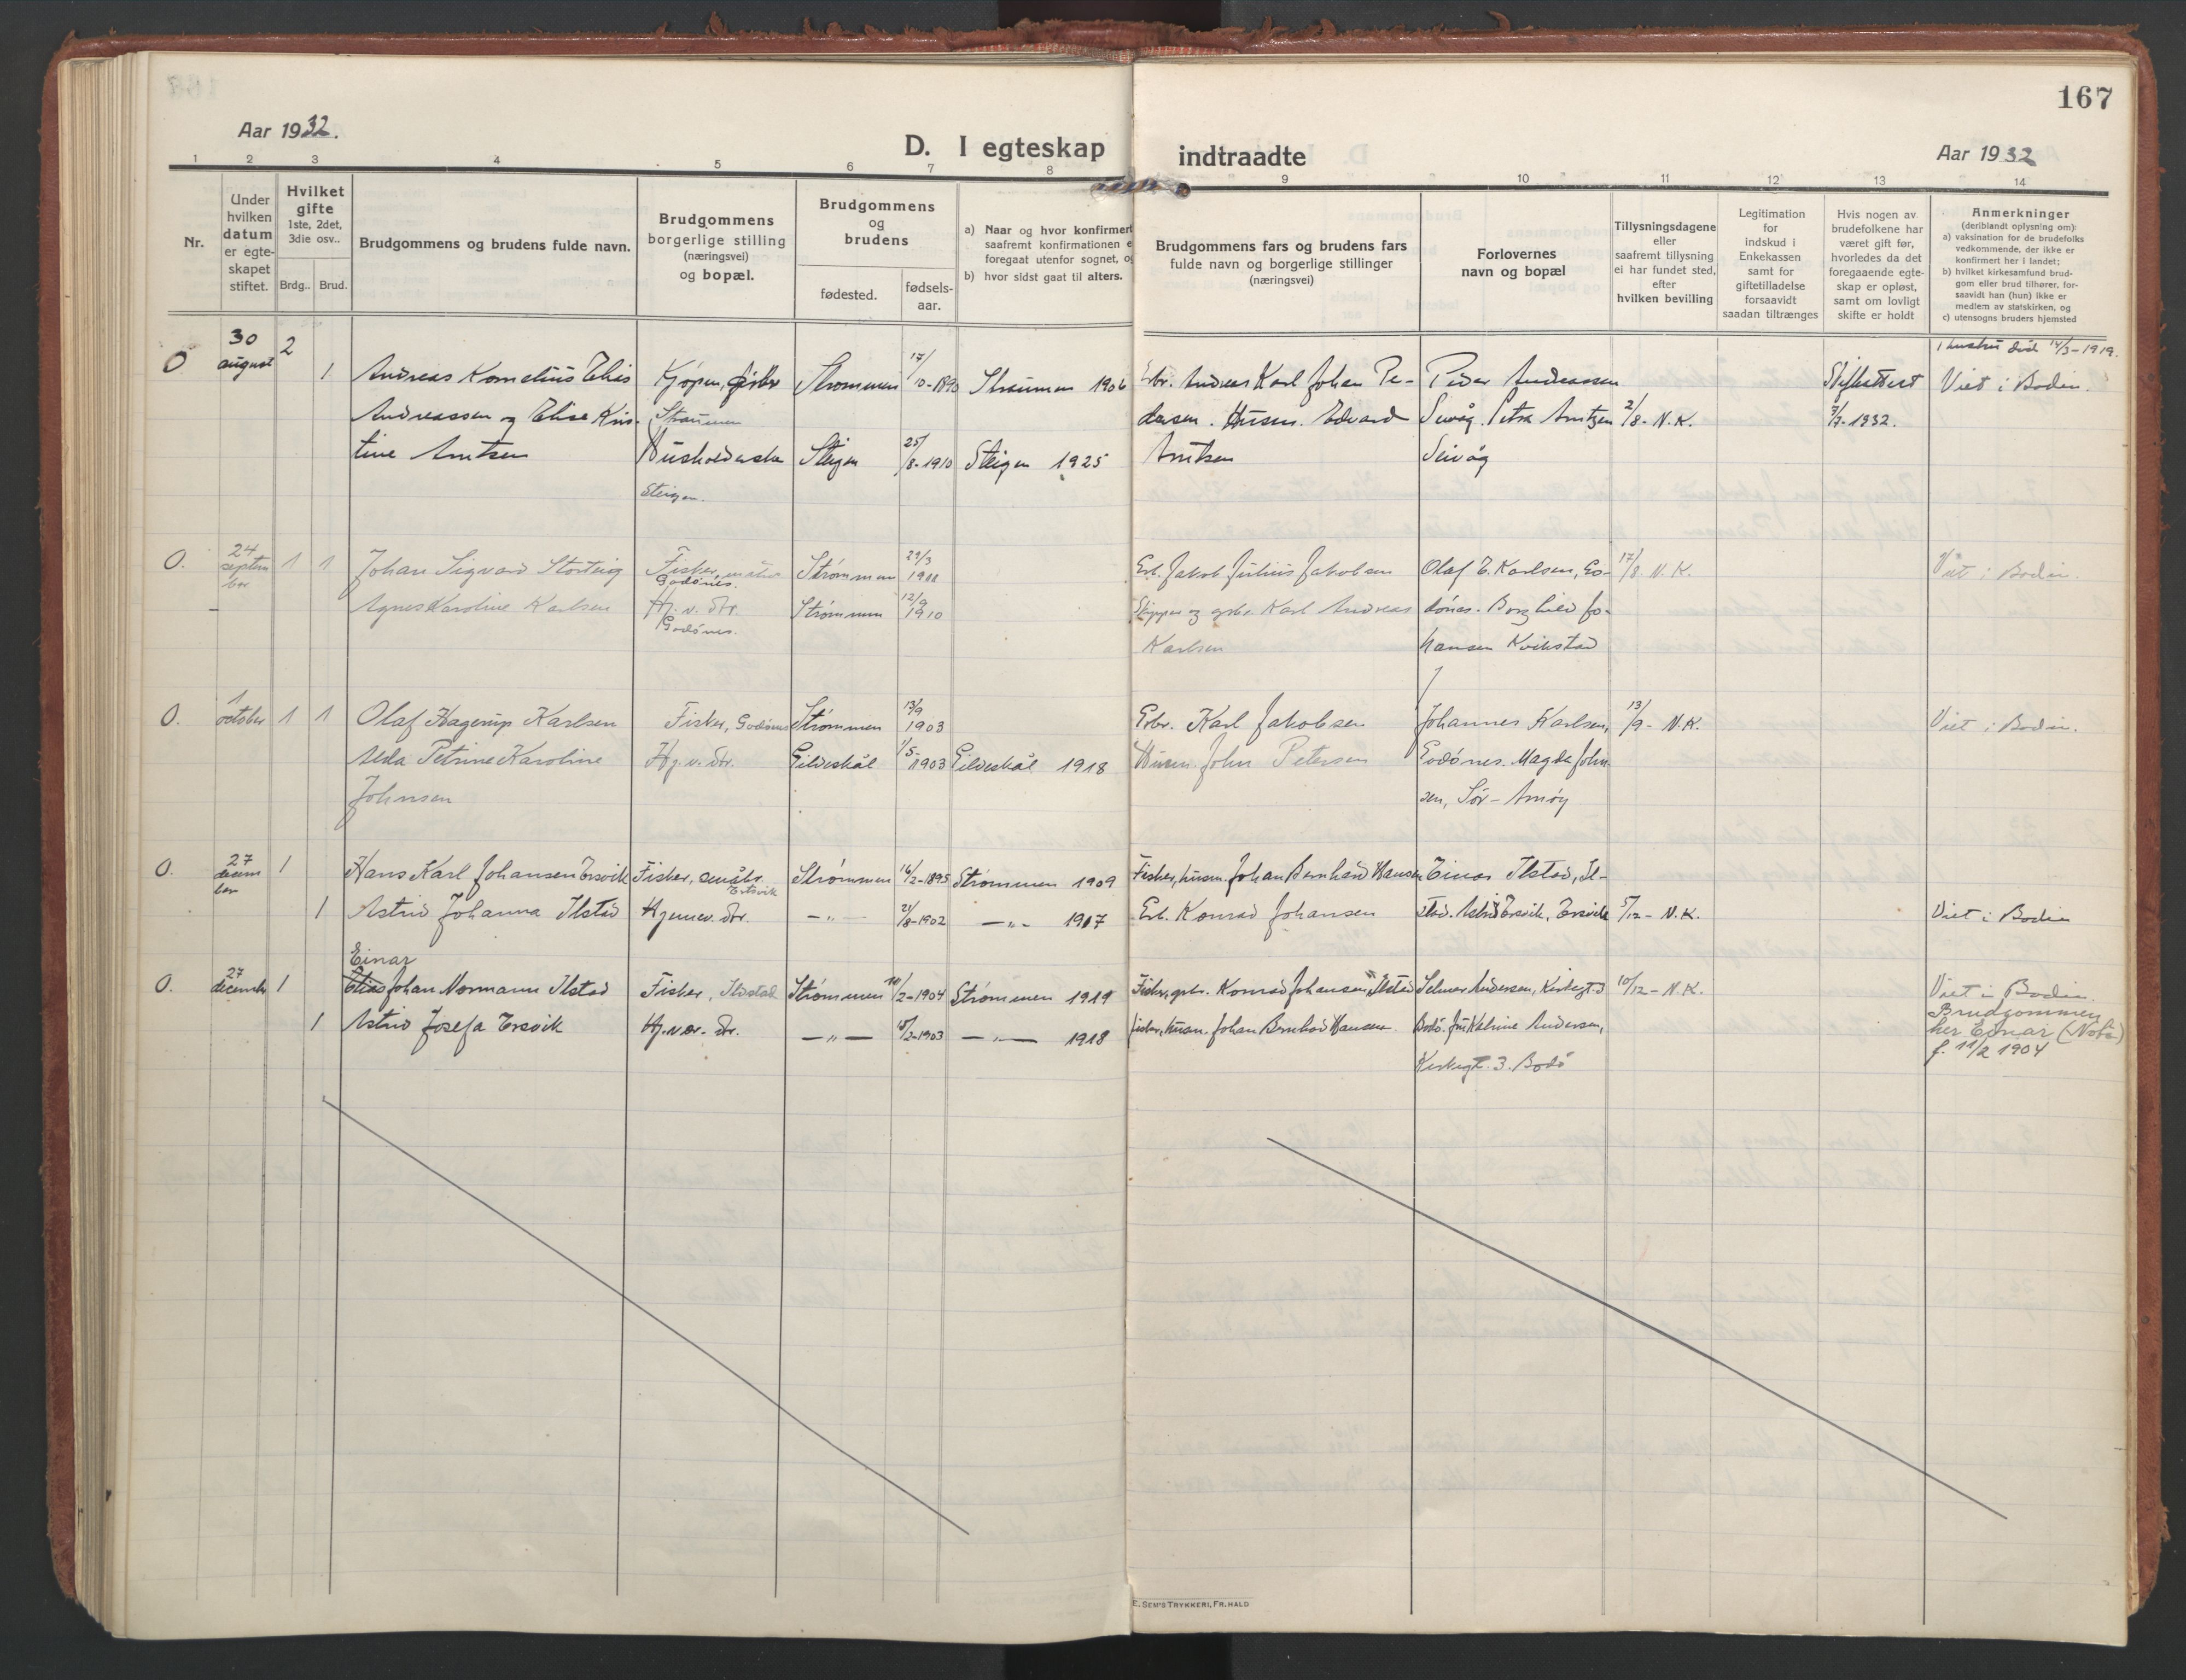 167
Aar 1932.
D. I egteskap indtraadte
Aar 1932
1 2 3 4 5 6 7 8 9 10 11 12 13 14
Nr.
Under hvilken datum er egte-skapet stiftet.
Hvilket gifte 1ste, 2det, 3die osv..
Brdg.. Brud.
Brudgommens og brudens fulde navn.
Brudgommens borgerlige stilling (næringsvei) og bopæl.
Brudgommens og brudens
fødested. fødsels-aar.
a) Naar og hvor konfirmert
saafremt konfirmationen e
foregaat utenfor sognet, og
b) hvor sidst gaat til alters.
Brudgommens fars og brudens fars
fulde navn og borgerlige stillinger
(næringsvei)
Forlovernes
navn og bopæl
Tillysningsdagene
eller
saafremt tillysning
ei har fundet sted,
efter
hvilken bevilling
Legitimation
for
indskud i
Enkekassen
samt for
giftetilladelse
forsaavidt
saadan tiltrænges
Hvis nogen av
brudefolkene har
været gift før,
hvorledes da det
foregaaende egte-
skap er opløst,
samt om lovligt
skifte er holdt
Anmerkninger
(deriblandt oplysning om):
a) vaksination for de brudefolks
vedkommende, der ikke er
konfirmert her i landet;
b) hvilket kirkesamfund brud-
gom eller brud tilhører, for-
saavidt han (hun) ikke er
medlem av statskirken, og
c) utensogns bruders hjemsted
30 2 1 hustru død 14/3-1919.
O august 1 Andreas Kornelius Elias Kjøpm, Strommen 17/10-1890 Straumen 1906 Erbr. Andreas Karl Johan Pe- Peder Andreassen Skifteattest Viet i Bodin.
Andreassen og Elise Kris- Straumen dersen. Husm. Edvard Seivåg. Petra Arntzen 2/8- N.K. 7/7-1932.
tine Arntsen Husholderske Steigen 25/8-1910 Steigen 1925 Arntsen Seivåg
Steigen.
O. 24 septem ber 1 1 Johan Sigvard Storteig Fisker, Godönes. Strømmen 29/3 1911 Erb. Jakob Julius Jakobsen Olaf E. Karlsen, Go- 17/8. N.K. Viet i Bodin.
Agnes Karoline Karlsen Hj. v. dtr. Godönes. Strømmen 12/9 1910 Skipper og gsbr. Karl Andreas dönes. Borghild Jo-
Karlsen hansen Kvikstad
O. 1 october 1 1 Olaf Hagerup Karlsen Fisker, Godönes Strømmen 13/9 1903 Erbr. Karl Jakobsen Johannes Karlsen, 13/9- N.K. Viet i Bodin.
Alda Petrine Karoline Hj. v. dtr. Gildeskål 1/5-1903 Gildeskål 1918 Husm. John Petersen Godönes. Magda John-
Johnsen sen, Sör-Arnöy
O. 27 decem ber 1 Hans Karl Johansen Ersvik Fisker, småbr. Ertsvik Strømmen 16/2-1895 Strømmen 1909 Fisker, husm. Johan Bernhard Hansen Einar Ilstad, Il-
1 Astrid Johanna Ilstad Hjemmev. dtr. -„- 21/8-1902 -„- 1917 Erb. Konrad Johansen stad. Astrid Ersvik, Ersvik 5/12- N.K. Viet i Bodin
Einar
O. 27 december 1 Elias Johan Normann Ilstad Fisker, Ildstad Strømmen 11/2-1904 Strømmen 1919 Fisker, gsbr. Konrad Johansen Ilstad Selmer Andersen, Kirkegt. 3 10/12- N.K. Viet i Bodin.
1 Astrid Josefa Ersvik Hj.vær. dtr. -„- 15/2-1903 -„- 1918 Fisker, husm. Johan Bernhard Hansen. Bodö. Fru Katrine Andersen, Brudgommen
Kirkegt. 3. Bodö her Einar (Nota)
f. 11/2 1904
E. SEM'S TRYKKERI, FR.HALD